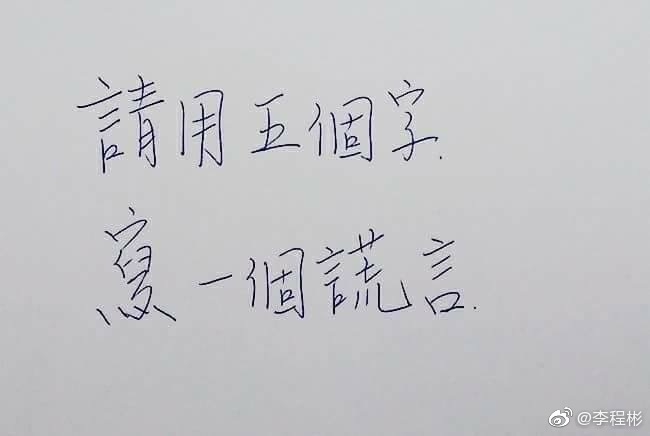 請用五個字.
寫一個謊言.
@李程彬